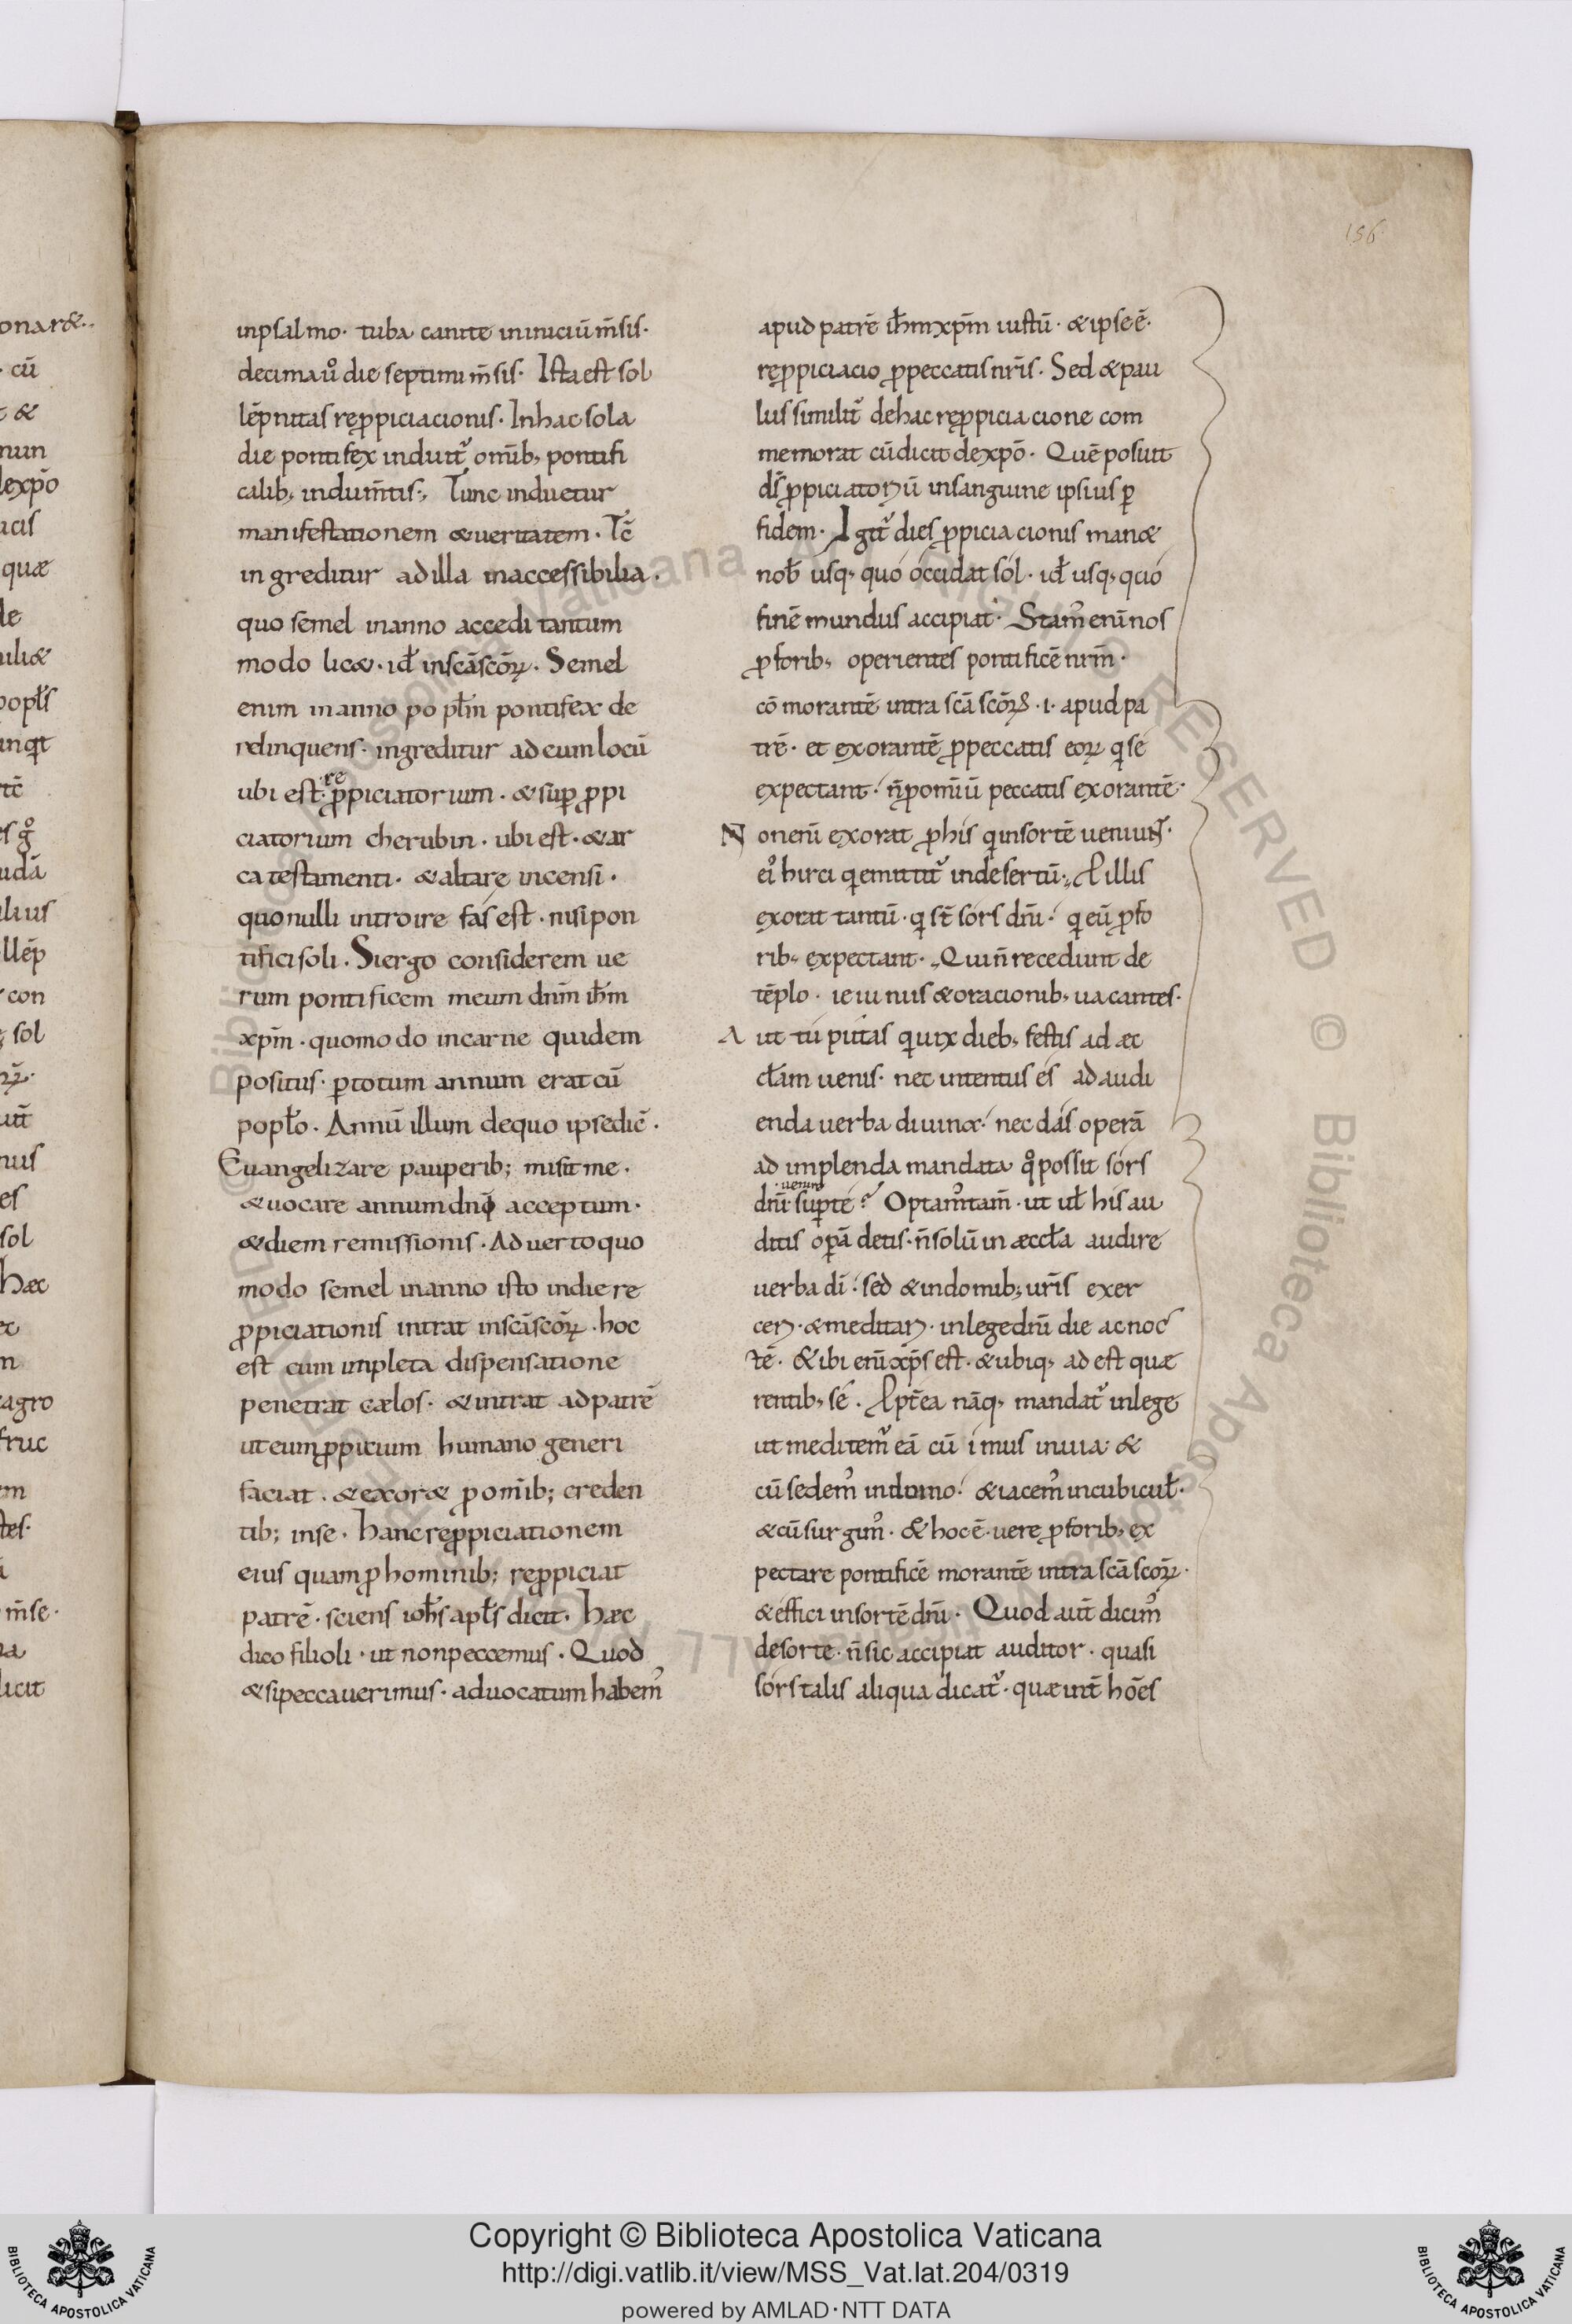 156
inpsalmo · tuba canite ininiciū m̄sis ·
decima ů die septimi m̄sis · Ista est sol
lēpnitas reꝓpiciacionis · In hac sola
die pontifex induit᷑ om̄ib, pontifi
calib, indum̄tis ·, Tunc induetur
manifestationem & ueritatem · Tc̄
ingreditur ad illa inaccessibilia ·
quo semel inanno accedi tantum
modo lic& · id̵ inscāscōꝝ · Semel
enim inanno popl̵m pontifex de
relinquens · ingreditur ad eum locū
ubi est · re ꝓpiciatorium · & suꝑ ꝓpi
ciatorium cherubin · ubi est · & ar
ca testamenti · & altare incensi ·
quo nulli introire fas est · nisi pon
tifici soli · Si ergo considerem ue
rum pontificem meum dn̄m ih̄m
xpm̄ · quomodo incarne quidem
positus · ꝑ totum annum erat cū
popl̵o · Annū illum dequo ipse dic̄ ·
Euangelizare pauperib; misit me ·
& uocare annum dn̄i acceptum ·
& diem remissionis · Aduerto quo
modo semel inanno isto indie re
ꝓpiciationis intrat inscāscōꝝ · hoc
est cum impleta dispensatione
penetrat cælos · & intrat ad patrē
ut eum ꝓpicium humano generi
faciat · & exor& ꝓ om̄ib; creden
tib; inse · hanc reꝓpiciationem
eius quam ꝓ hominib; reꝓpiciat
patrē · sciens ioh̄s apl̵s dicit · Hæc
dico filioli · ut non peccemus · Quod
& si peccauerimus · aduocatum habem᾿
apud patrē ih̄m xpm̄ iustū · & ipse ē ·
reꝓpiciacio ꝓ peccatis nr̄is · Sed & pau
lus similit᷑ dehac reꝓpiciacione com
memorat cū dicit de xpō · Quē posuit
ds̄ ꝓpiciatoriū insanguine ipsius ꝑ
fidem · Igit᷑ dies ꝓpiciacionis man&
nob̄ usq, quo occidat sol · id̵ usq, quo
finē mundus accipiat · Stam᾿ enī nos
ꝓ forib, operientes pontificē nrm̄ ·
cōmorantē intra scā scōꝝ · i · apud pa
trē · et exorantē ꝓ peccatis eoꝝ q̇ se
expectant · n̄ ꝓ omīū peccatis exorantē ·
Non enī exorat ꝓ his q̇ insortē ueniut̄ ·
ei᾿ hirci q̇ emittit᷑ indesertū ·, ꝓ illis
exorat tantū · q̇ st̄ sors dn̄i · q̇ eū ꝓ fo
rib, expectant · Qui n̄ recedunt de
tēplo · ieiunus & oracionib, uacantes ·
A ut tu putas q̇ uix dieb, festis ad æc
cl̵am uenis · nec intentus es ad audi
enda uerba diuina · nec das operā
ad implenda mandata q̊ possit sors
dn̄i · uenire suꝑ te? Optam᾿ tam̄ · ut ul̵ his au
ditis oꝑā detis · n̄ solū in æccl̵a audire
uerba dī · sed & indomib; ur̄is exer
ceri · & meditari · inlege dn̄i die ac noc
tē · & ibi enī xp̄s est · & ubiq, ad est quæ
rentib, se · ꝓpt̄ea nāq, mandat᷑ inlege
ut meditem᷑ eā cū imus inuia &
cū sedem᾿ indomo · & iacem᾿ incubicul̵ ·
& cū surgim᾿ · & hoc ē · uere ꝓ forib, ex
pectare pontificē morantē intra scā scōꝝ ·
& effici insortē dn̄i · Quod aut̄ dicim᾿
desorte · n̄ sic accipiat auditor · quasi
sors talis aliqua dicat᷑ · quæ int̄ hōes
Copyright © Biblioteca Apostolica Vaticana
http://digi.vatlib.it/view/MSS_Vat.lat.204/0319
powered by AMLAD·NTT DATA
BIBLIOTECA APOSTOLICA VATICANA
BIBLIOTECA APOSTOLICA VATICANA